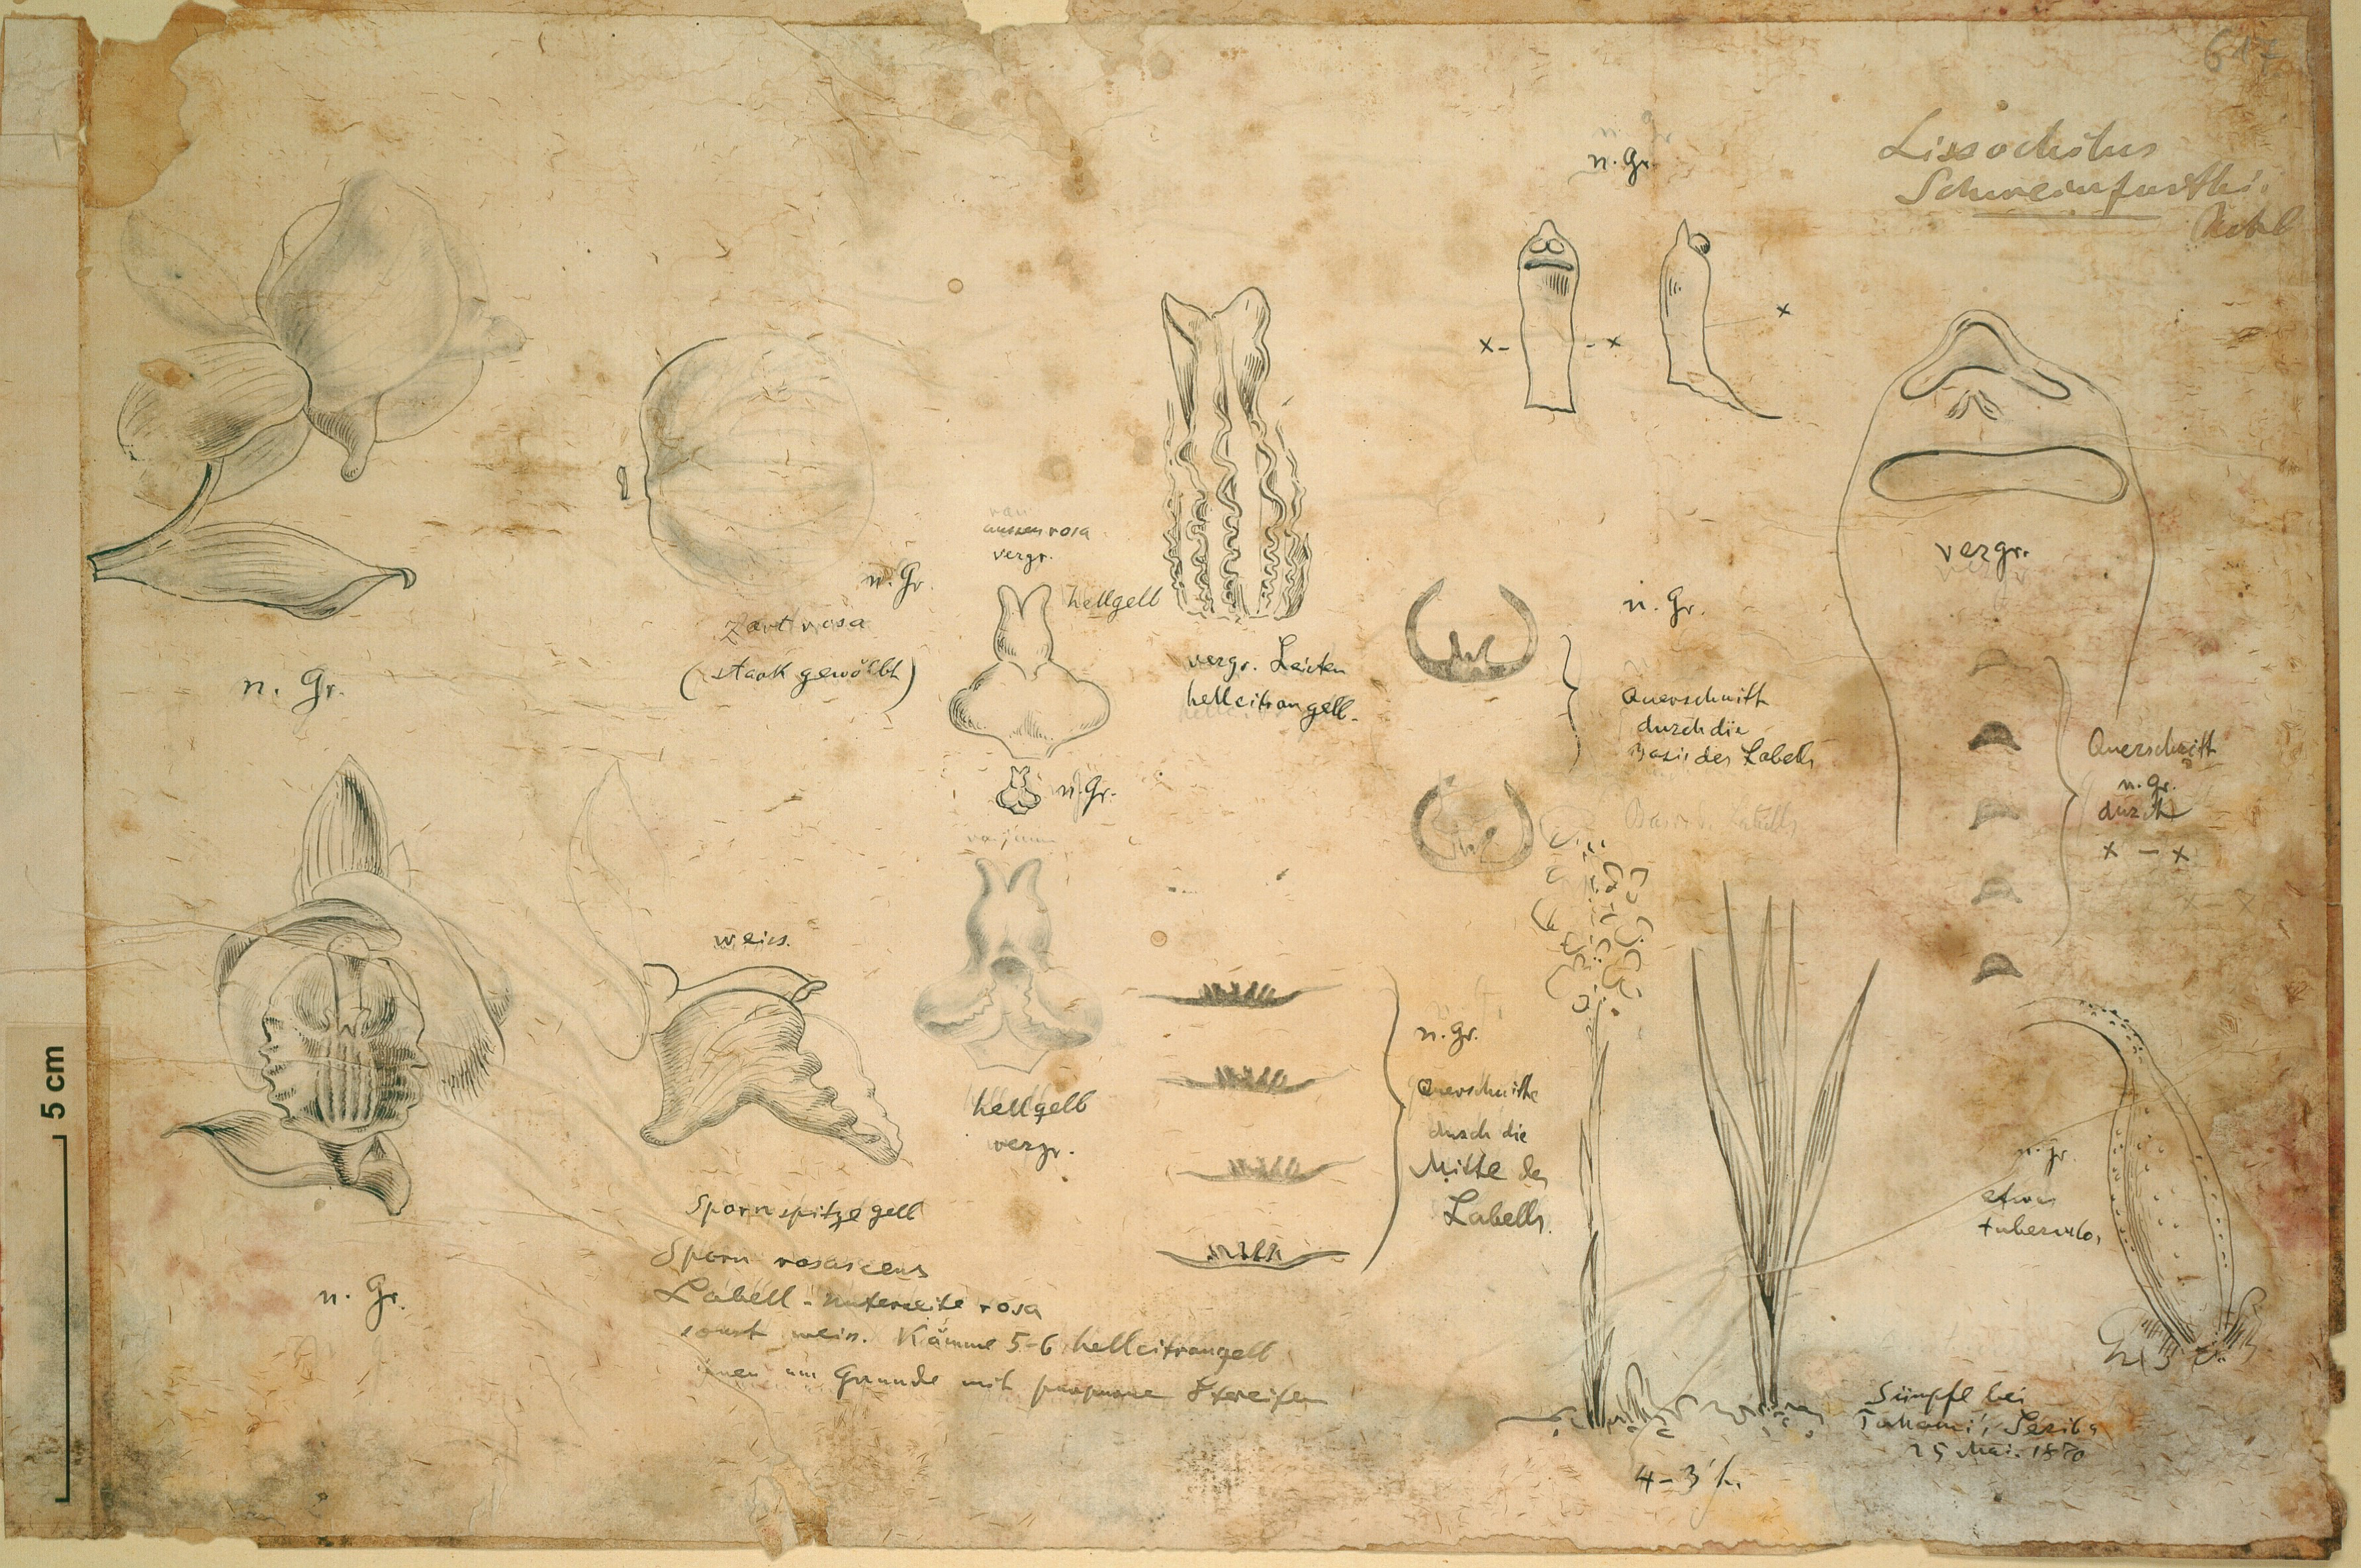 Lissochilus
Schweinfurthii
n. Gr.
x - - x
x
vergr.
n. Gr.
zart rosa
(stark gewölbt)
n. Gr.
aussen rosa
vergr.
hellgelb
n. Gr.
vergr. Leisten
hellcitrongelb.
n. Gr.
Querschnitt
durch die
Basis des Labells
Querschnitt
n. Gr.
durch
x - x
weiss.
hellgelb
vergr.
n. Gr.
Querschnitte
durch die
Mitte des
Labells.
n. Gr.
Spornspitze gelb
Sporn rosascens
Labell-Unterseite rosa
sonst weiss. Kämme 5-6 hellcitrongelb
innen am Grunde mit purpurne Streifen
n. gr.
etwas
Sümpfe bei
Seriba
25 Mai. 1870
4-3' h.
5 cm